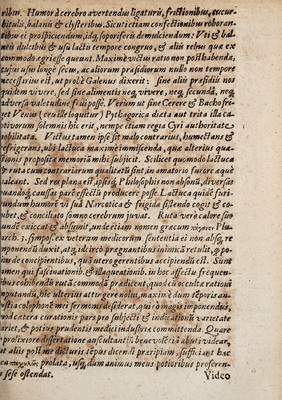 ribus. Humor à cerebro avertendus ligaturis, frictionibus, cucur-
bitulis, balanis & clysteribus. Sicuti etiam confectionibus roboran-
tibus ei prospiciendum, idq; soporiferis demulciendum: Uti & bal-
neis dulcibus & usu lactis tempore congruo, & aliis rebus quæ ex
commodo ægrè esse queunt. Maximè victus ratio non posthabenda,
cujus usu longè secus, ac aliorum præsidiorum nullo non tempore
necessarius est, ut probè Galenus dixerit: sine aliis præsidiis nos
quidem vivere, sed sine alimentis neq; vivere, neq; secunda, neq;
adversa valetudine frui posse. Verum ut sine Cerere & Bacho fri-
get Venus (ceu ille loquitur) Pythagorica diæta aut trita illa ca-
pitivorum solemnis hic erit, nempe etiam regia Cyri authoritate
nobilitata. Victus tamen ipse sit malo contrarius, humectans &
refrigerans, ubi lactuca maximè immiscenda, quæ alterius quæ-
tionis proposita memoriam mihi subjicit. Scilicet quomodo lactuca
& ruta cum contrariarum qualitatum sint, in amatorio furore æquè
valeant. Sed res plana est, ipsisq; Philosophis non absona, diversæ
quandoq; causas pari effectu producere posse. Lactuca quidē furi-
bundum humorē vi suâ Narcotica & frigida sistendo cogit & co-
hibet, & conciliato somno cerebrum juvat. Ruta verò calore suo
undè exiccat & absumit, unde etiam nomen græcum πήγανον Plu-
arch. 3. sympos. ex veterum medicorum sententia ei non absq; re
imponendū duxit, atq; ideò prægnantibus inimica retulit, q̀ po-
nè de concipientibus, quàm utero gerentibus accipiendū est. Sunt
amen qui fascinationib. & illaqueationib. in hoc affectu frequen-
tibus cohibendis rutâ commodâ prædicent, quod cū occultâ rationi
mputandū, hic ulterius attingere nolui, maximē dum tēporis an-
gustia colophonē mei sermonis desiderat, qui is â magis imponendus,
quòd cætera curationis pars pro subjecti & indicationū varietate
variet, & potius prudentis medici industriæ committenda. Quare
prolixiore dissertatione auscultantiū benevolentiâ abuti videar,
ut aliis post me dicturis tēpus dicendi præripiam, sufficiant hæc
prolata, usq; dum animus meus potioribus proferen-
is sese ostendat.
Video